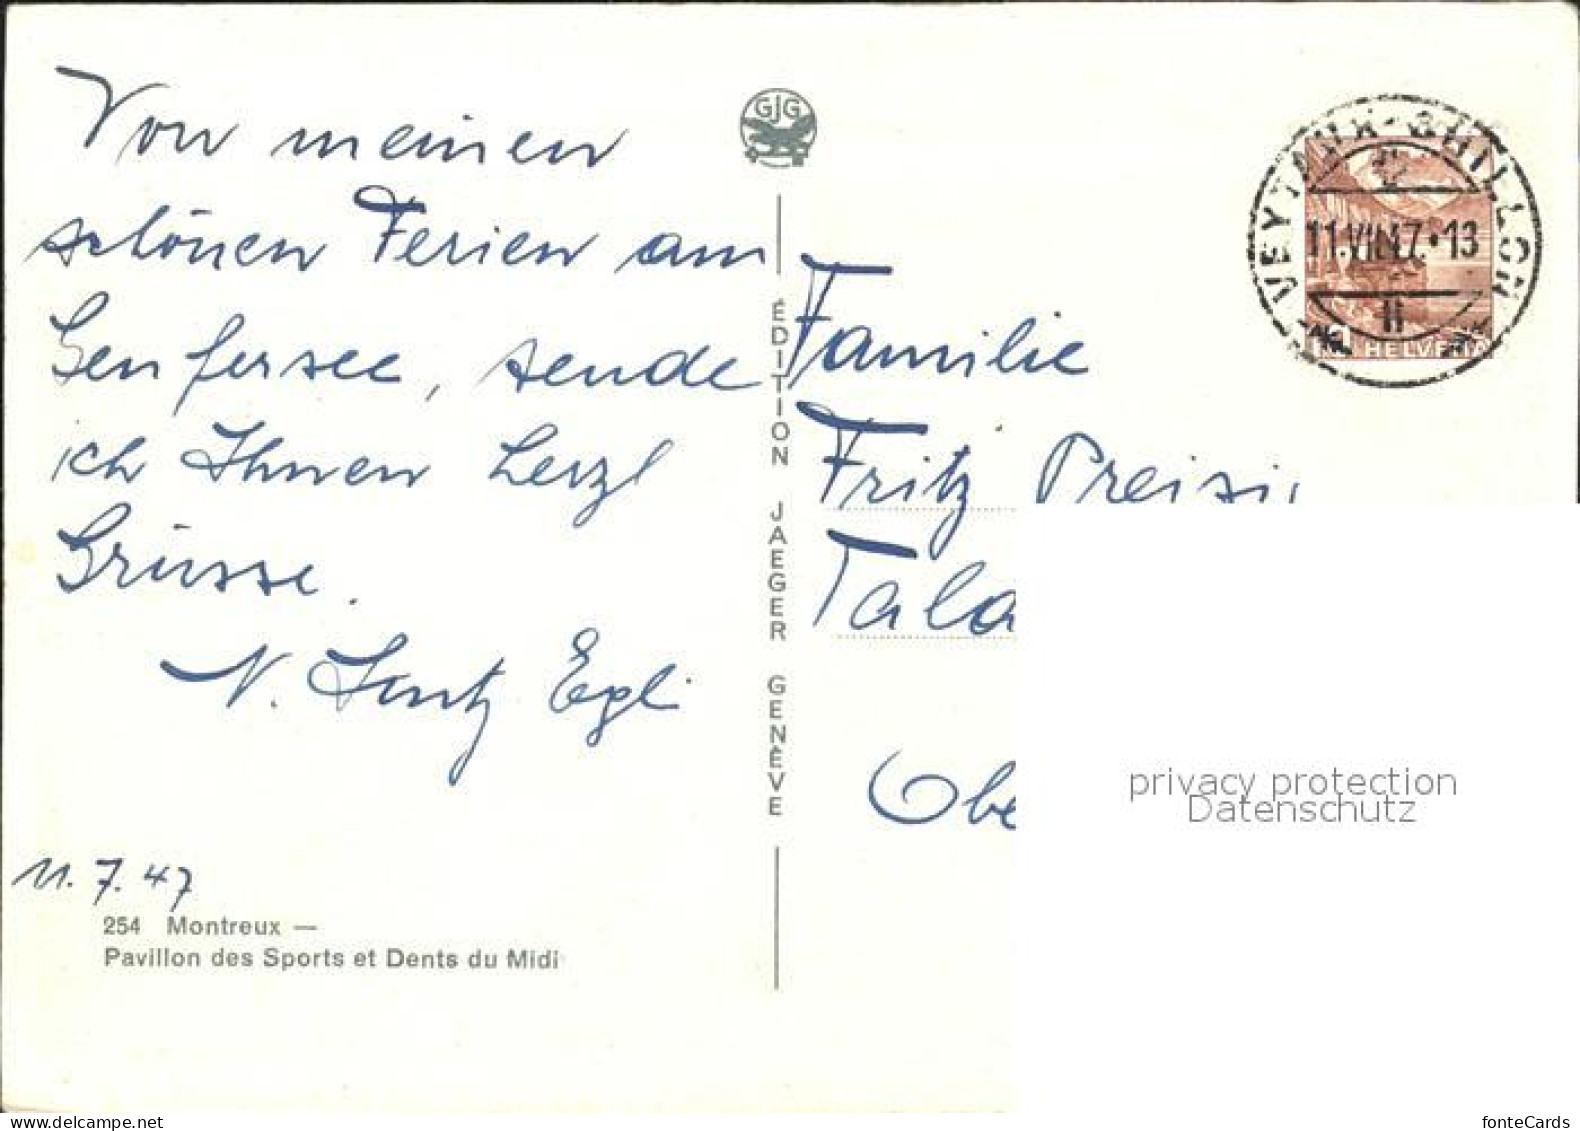 Von meinen
schönen Ferien am
Genfersee, sende
ich Ihnen herzl
Grüsse.
11.7.47
254 Montreux —
Pavillon des Sports et Dents du Midi
GJG
ÉDITION JAEGER GENÈVE
VEYTAUX-CHILLON
11.VII.47.-13
HELVETIA
Familie
Fritz
privacy protection
Datenschutz
fonteCards